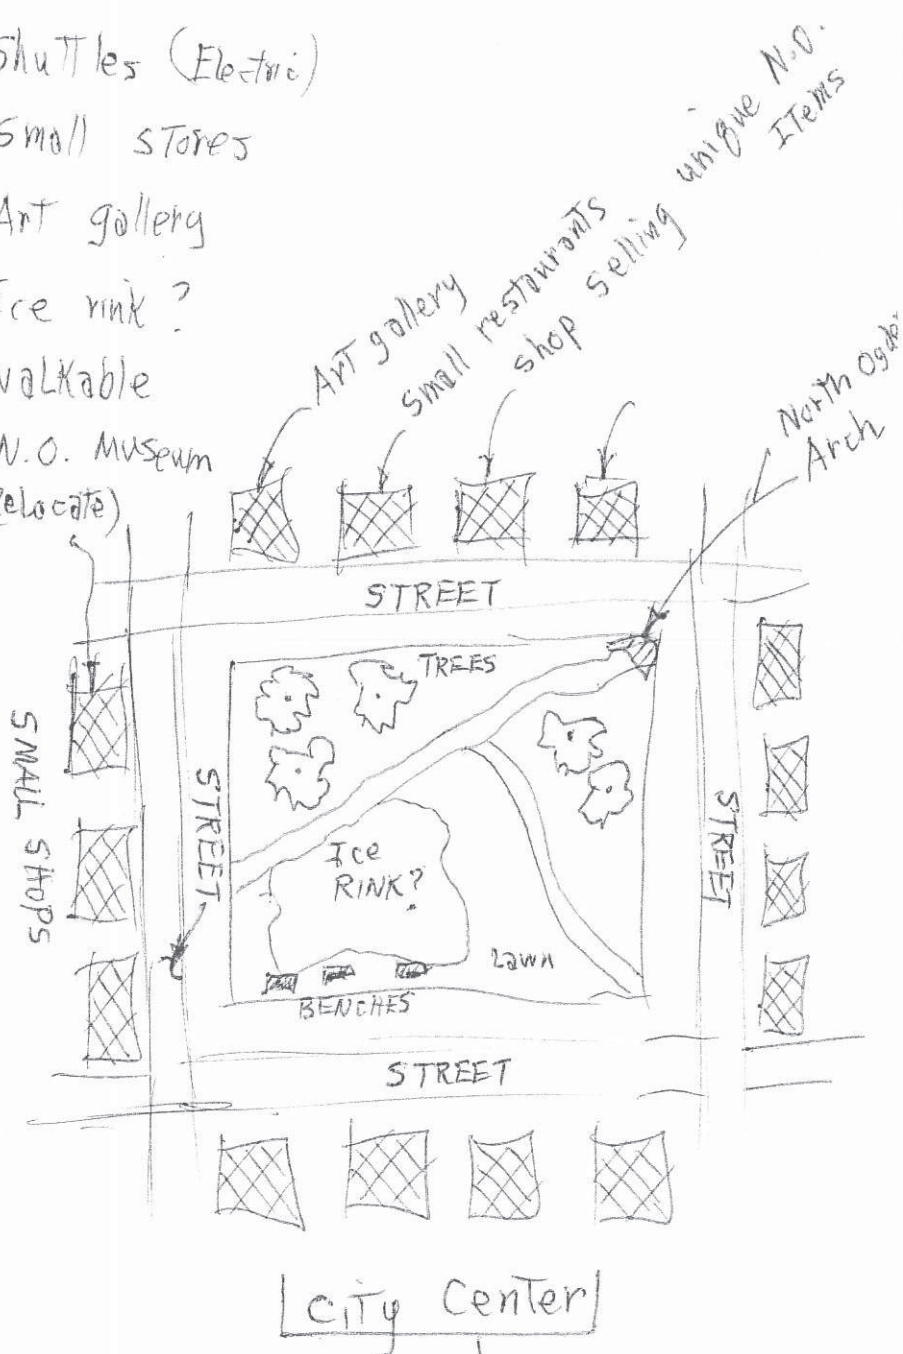 Shuttles (Electric)
Small stores
Art gallery
Ice rink ?
Walkable
N.O. Museum
(Relocate)
Art gallery
Small restaurants
shop selling unique N.O.
Items
North Ogde
Arch
STREET
TREES
SMALL SHOPS
STREET
STREET
Ice
RINK?
Lawn
BENCHES
STREET
City Center